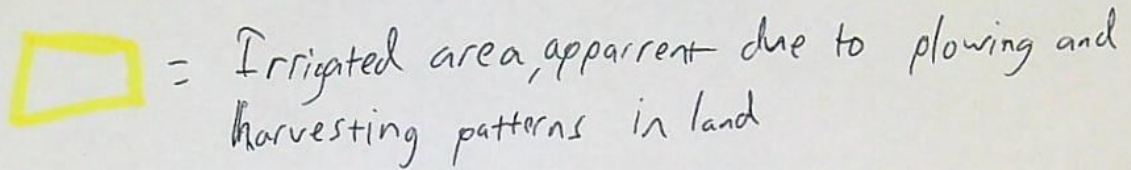 = Irrigated area, apparrent due to plowing and
harvesting patterns in land